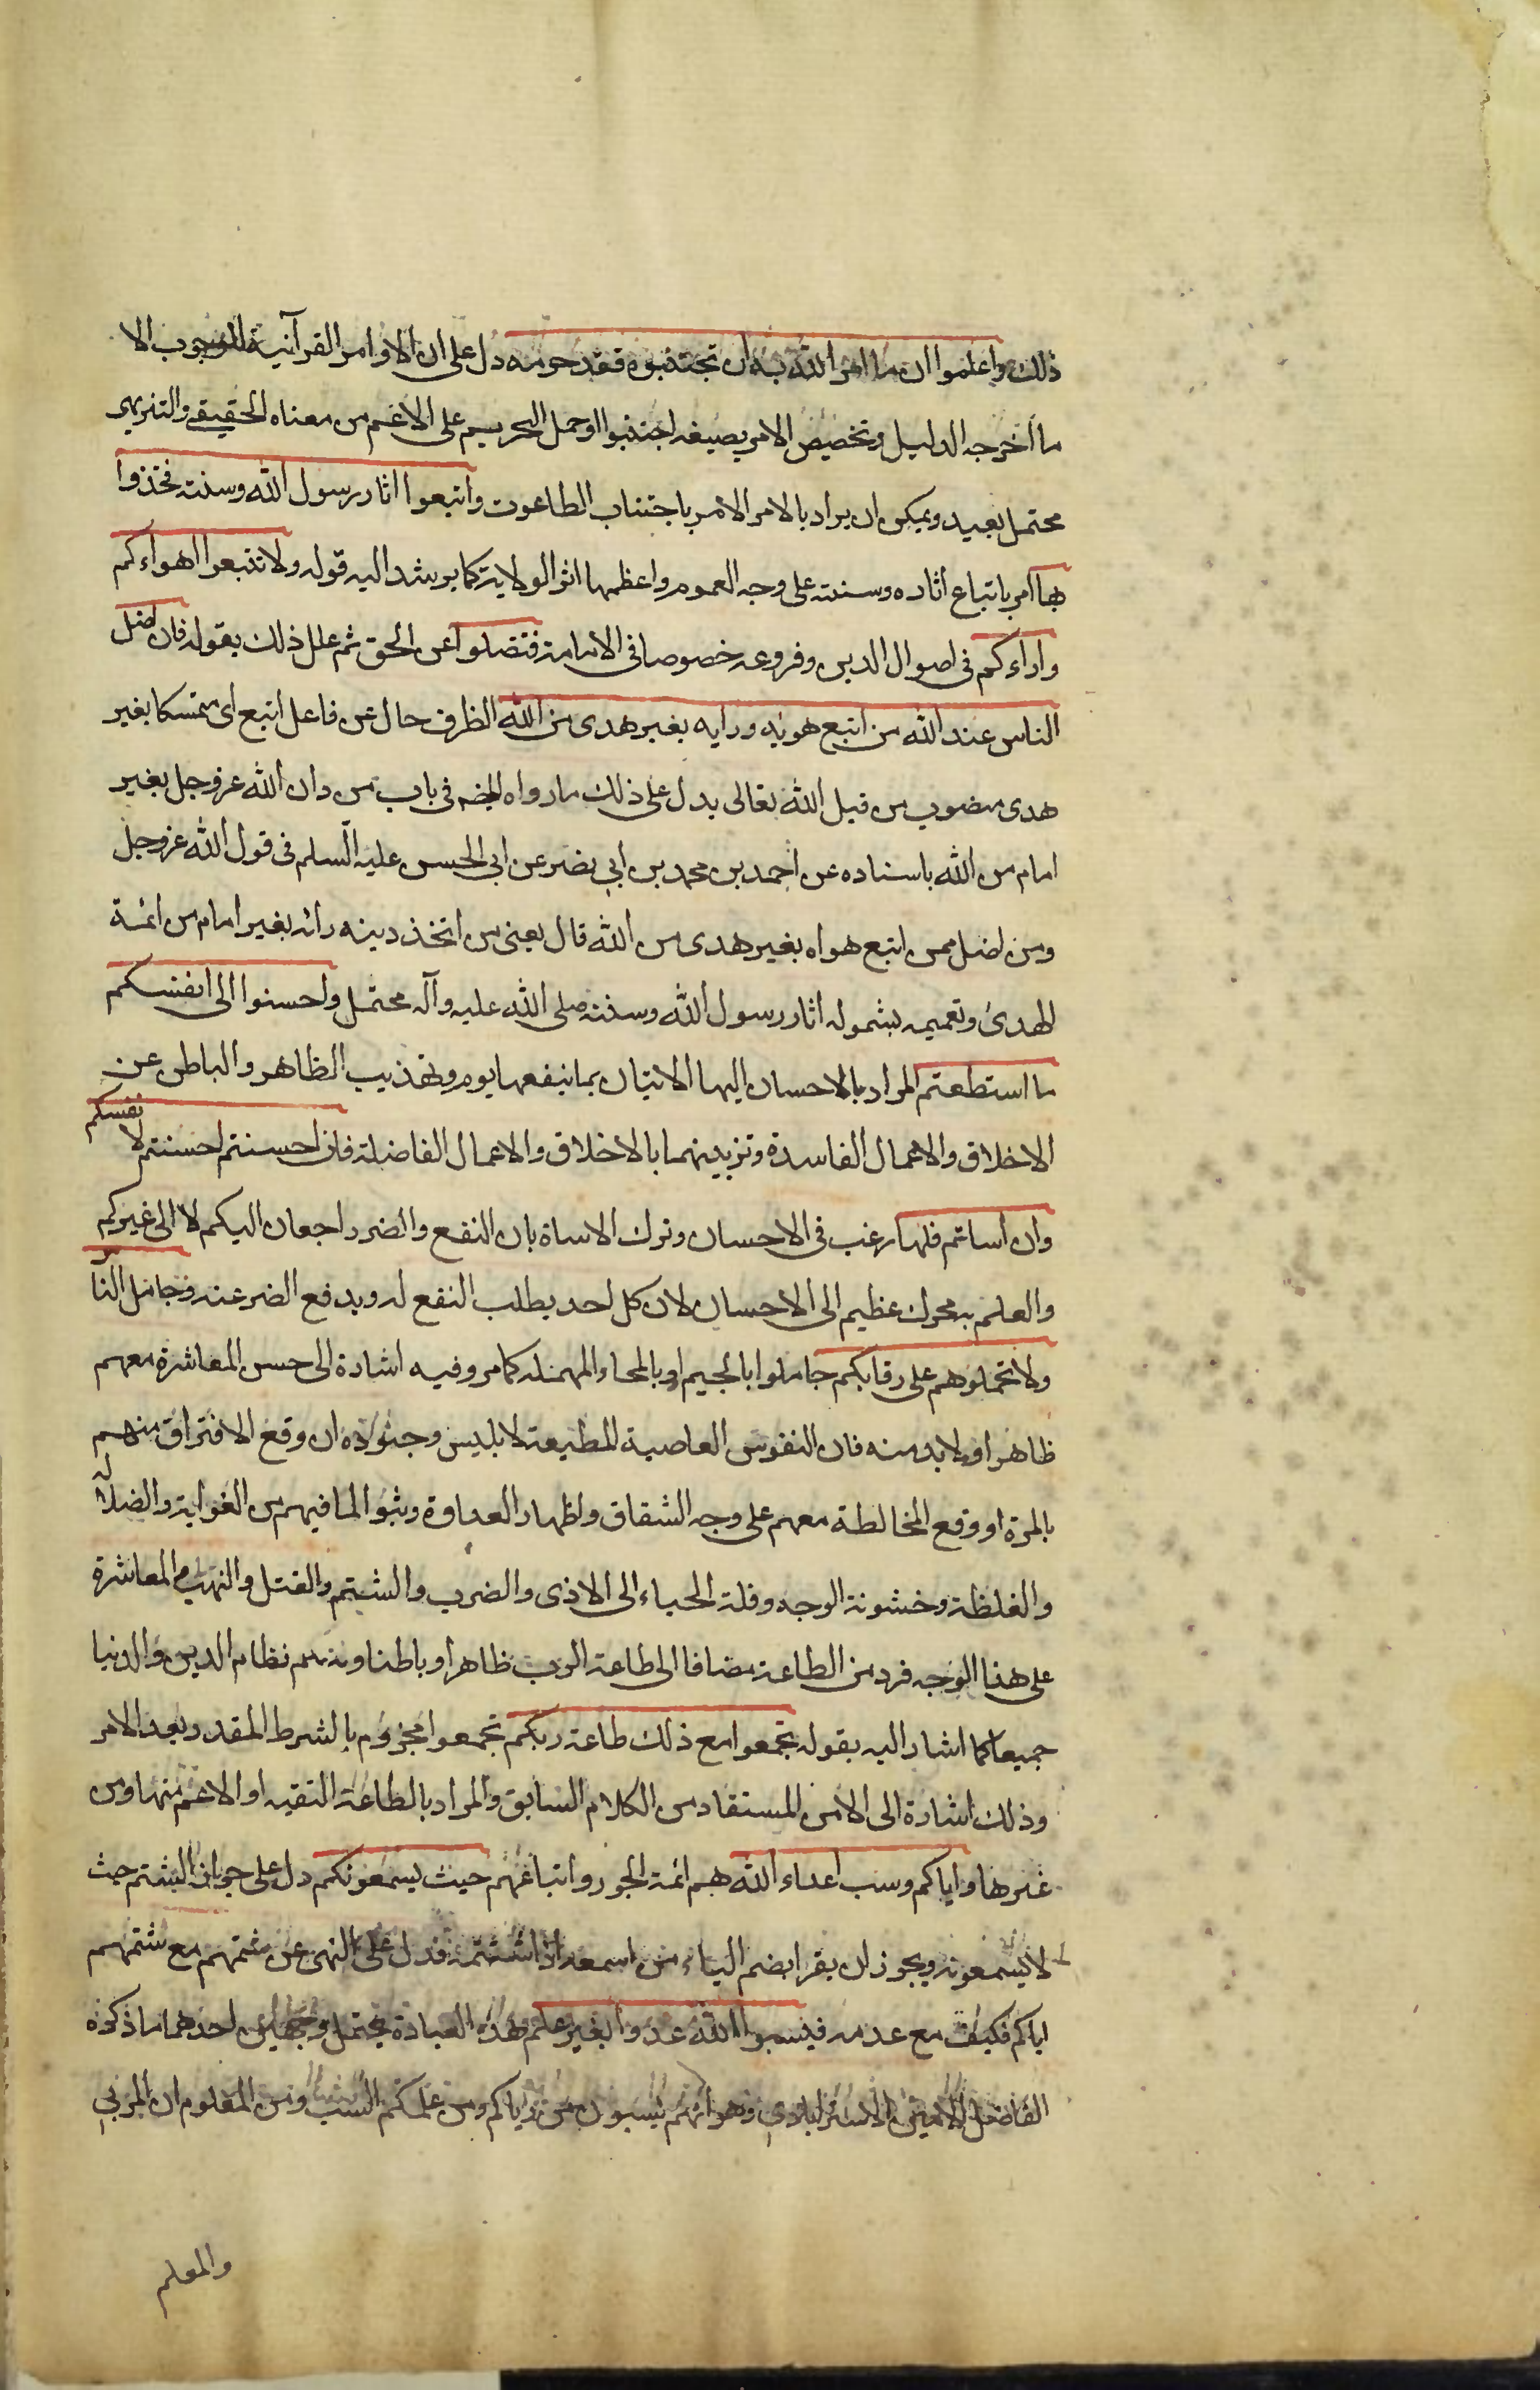 ذلك واعلموا ان ما امر الله به ان تجتنبوه فقد حرمه دل على ان الاوامر القرآنية للوجوب الا
ما اخرجه الدليل وتخصيص الامر بصيغه اجتنبوا او حمل التحريم على الاعم من معناه الحقيقي والتنزيهي
محتمل بعيد ويمكن ان يراد بالامر الامر باجتناب الطاغوت واتبعوا اثار رسول الله وسنته فخذوا
بها امر باتباع اثاره وسنته على وجه العموم واعظمها اثر الولاية كما يرشد اليه قوله ولا تتبعوا اهواءكم
واراءكم في اصول الدين وفروعه خصوصا في الامامة فتضلوا عن الحق ثم علل ذلك بقوله فان اضل
الناس عند الله من اتبع هويه ورايه بغير هدى من الله الظرف حال عن فاعل اتبع اى متمسكا بغير
هدى منصوب من قبل الله تعالى يدل على ذلك ما رواه المص في باب من دان الله عز وجل بغير
امام من الله باسناده عن احمد بن محمد بن ابي نصر عن ابي الحسن عليه السلم في قول الله عز وجل
ومن اضل ممن اتبع هواه بغير هدى من الله قال يعني من اتخذ دينه رائه بغير امام من ائمة
الهدى وتعميمه بشموله اثار رسول الله وسنته صلى الله عليه وآله محتمل واحسنوا الى انفسكم
ما استطعتم المراد بالاحسان اليها الاتيان بما ينفعها يوم وتهذيب الظاهر والباطن عن
الاخلاق والاعمال الفاسدة وتزيينهما بالاخلاق والاعمال الفاضلة فان احسنتم احسنتم لا نفسكم
وان اساتم فلها رغب في الاحسان وترك الاساة بان النفع والضرر راجعان اليكم لا الى غيركم
والعلم به محرك عظيم الى الاحسان لان كل احد يطلب النفع له ويدفع الضر عنه وجاملوا النا س
ولا تحملوهم على رقابكم جاملوا بالجيم او بالحاء المهملة كما مر وفيه اشارة الى حسن المعاشرة معهم
ظاهرا ولا بد منه فان النفوس العاصية المطيعة لابليس وجنوده ان وقع الافتراق منهم
بالمرة او وقع المخالطة معهم على وجه الشقاق واظهار العداوة وثبوا لما فيهم من الغواية والضلالة
والغلظة وخشونة الوجه وقلة الحياء الى الاذى والضرب والشتم والقتل والنهب والمعاشرة
على هذا الوجه فرد من الطاعة مضافا الى طاعة الرب ظاهرا وباطنا وبه يتم نظام الدين والدنيا
جميعا كما اشار اليه بقوله تجمعوا مع ذلك طاعة ربكم تجمعوا مجزوم بالشرط المقدر بعد الامر
وذلك اشارة الى الامر المستفاد من الكلام السابق والمراد بالطاعة التقيه او الاعم منها ومن
غيرها واياكم وسب اعداء الله هم ائمة الجور واتباعهم حيث يسمعونكم دل على جواز الشتم حيث
لا يسمعونه ويجوز ان يقرا بضم الياء من اسمعه اذا شتمه فدل على النهى عن شتمهم مع شتمهم
اياكم فكيف مع عدمه فيسبوا الله عدوا بغير علم وهذه العبارة يحتمل وجهين احدهما ما ذكره
الفاضل الامين الاسترابادي وهو انهم يسبون من رباكم ومن علمكم السب ومن المعلوم ان المربي
والمعلم